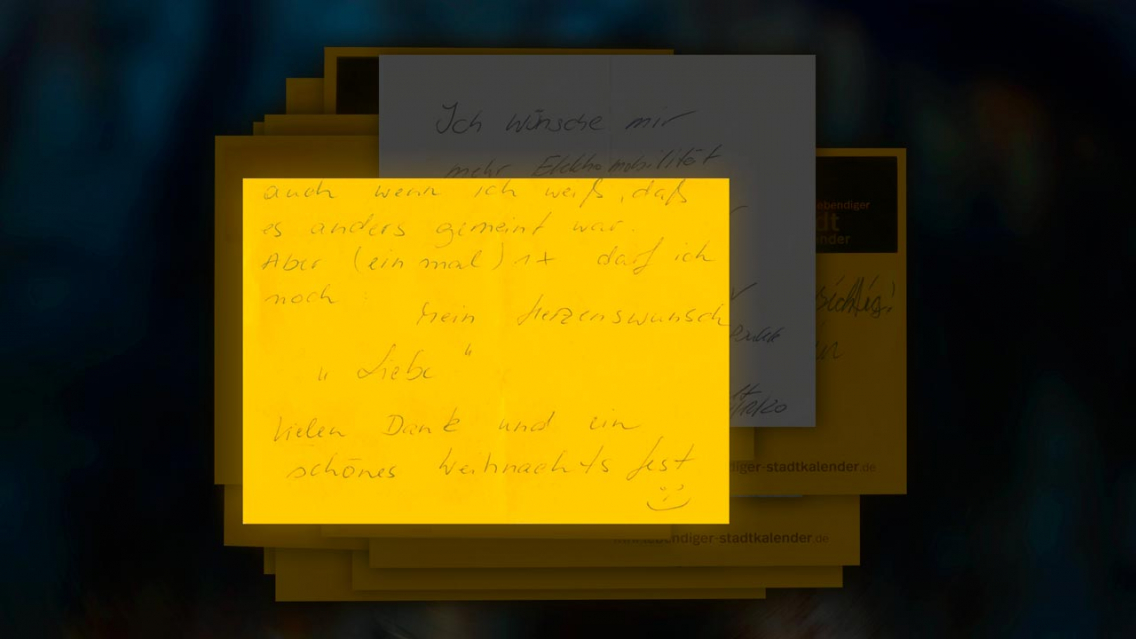 Ich wünsche mir
mehr Elektromobilität
auch wenn ich weiß, daß
es anders gemeint war.
Aber (ein mal) 1x darf ich
noch :
Mein Herzenswunsch
"Liebe"
Vielen Dank und ein
schönes Weihnachtsfest
ebendiger
dt
ender
diger-stadtkalender.de
lebendiger-stadtkalender.de